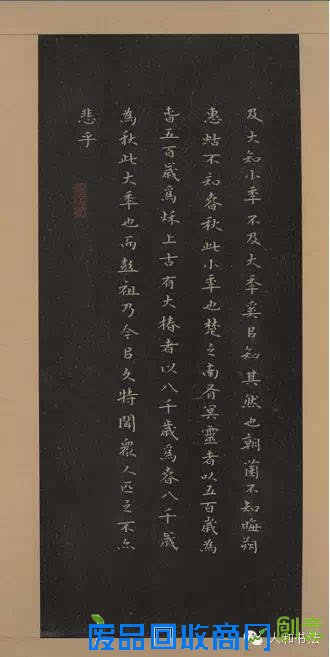 及大知小秊不及大秊奚㠯知其然也朝菌不知晦朔
惠蛄不知旾秋此小秊也楚之南有冥靈者以五百歲為
旾五百歲爲秌上古有大椿者以八千歲爲旾八千歲
為秋此大秊也而彭祖乃今㠯久特聞眾人匹之不亦
悲乎
人和书法
废品回收商网